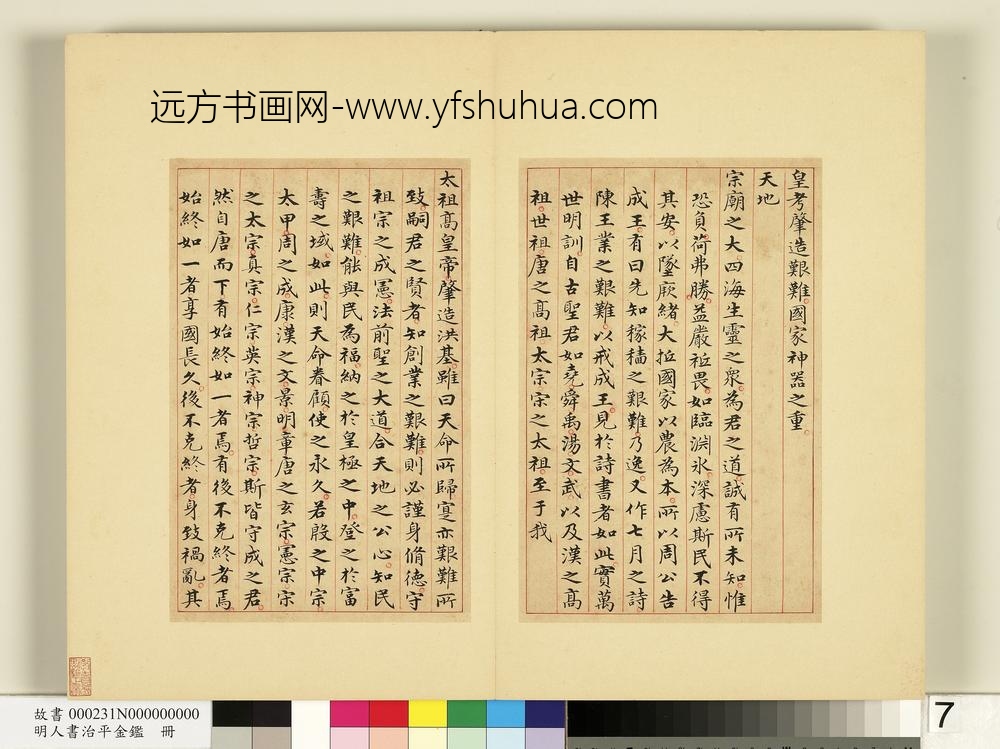 远方书画网-www.yfshuhua.com
皇考肇造艱難國家神器之重
天地
宗廟之大四海生靈之衆為君之道誠有所未知惟
恐負荷弗勝益嚴祗畏如臨淵氷深慮斯民不得
其安以墜厥緒大抵國家以農為本所以周公告
成王有曰先知稼穡之艱難乃逸又作七月之詩
陳王業之艱難以戒成王見於詩書者如此實萬
世明訓自古聖君如堯舜禹湯文武以及漢之高
祖世祖唐之高祖太宗宗之太祖至于我
太祖高皇帝肇造洪基雖曰天命所歸寔亦艱難所
致嗣君之賢者知創業之艱難則必謹身脩德守
祖宗之成憲法前聖之大道合天地之公心知民
之艱難能與民為福納之於皇極之中登之於富
壽之域如此則天命眷顧使之永久若殷之中宗
太甲周之成康漢之文景明章唐之玄宗憲宗宗
之太宗真宗仁宗英宗神宗哲宗斯皆守成之君
然自唐而下有始終如一者焉有後不克終者焉
始終如一者享國長久後不克終者身致禍亂其
故書 000231N000000000
明人書治平金鑑 冊
7